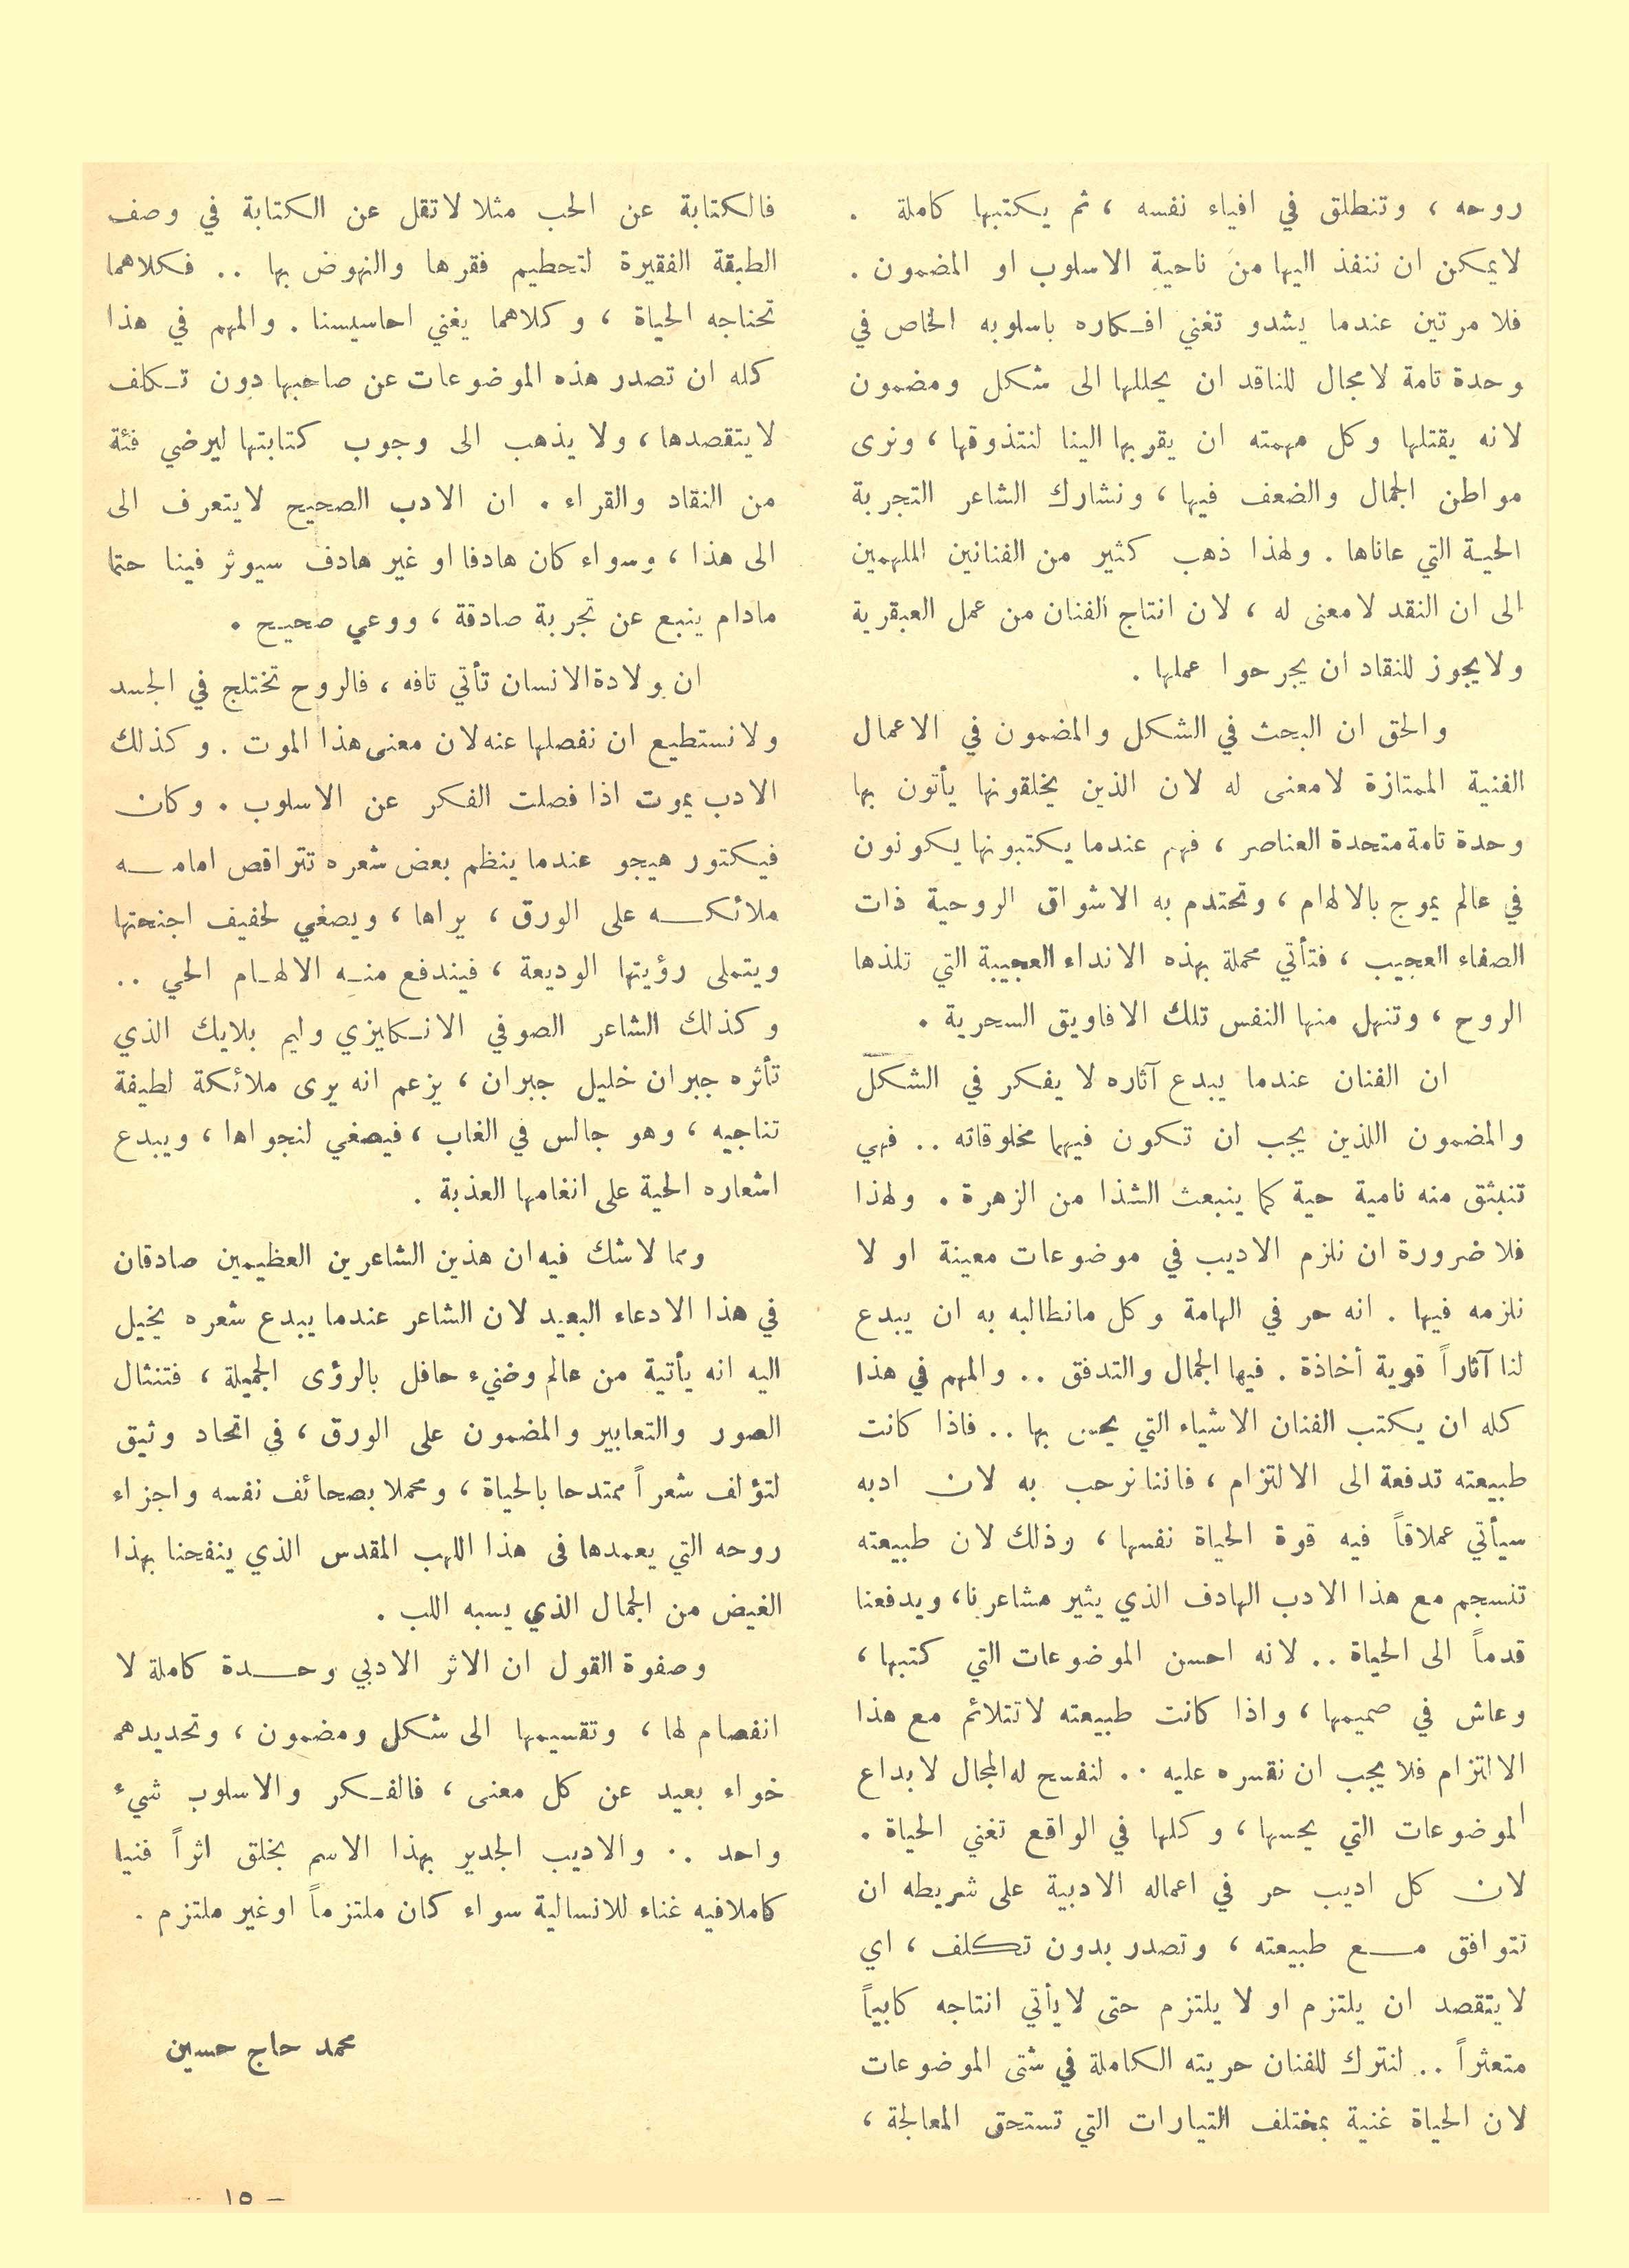 روحه ، وتنطلق في افياء نفسه ، ثم يكتبها كاملة .
لا يمكن ان ننفذ اليها من ناحية الاسلوب او المضمون .
فلا مرتين عندما يشدو تغني افكاره باسلوبه الخاص في
وحدة تامة لا مجال للناقد ان يحللها الى شكل ومضمون
لانه يقتلها وكل مهمته ان يقربها الينا لنتذوقها ، ونرى
مواطن الجمال والضعف فيها ، ونشارك الشاعر التجربة
الحية التي عاناها . ولهذا ذهب كثير من الفنانين الملهمين
الى ان النقد لا معنى له ، لان انتاج الفنان من عمل العبقرية
ولا يجوز للنقاد ان يجرحوا عملها .
والحق ان البحث في الشكل والمضمون في الاعمال
الفنية الممتازة لا معنى له لان الذين يخلقونها يأتون بها
وحدة تامة متحدة العناصر ، فهم عندما يكتبونها يكونون
في عالم يموج بالالهام ، وتحتدم به الاشواق الروحية ذات
الصفاء العجيب ، فتأتي محملة بهذه الانداء العجيبة التي تلذها
الروح ، وتنهل منها النفس تلك الافاويق السحرية .
ان الفنان عندما يبدع آثاره لا يفكر في الشكل
والمضمون اللذين يجب ان تكون فيهما مخلوقاته .. فهي
تنبثق منه نامية حية كما ينبعث الشذا من الزهرة . ولهذا
فلا ضرورة ان نلزم الاديب في موضوعات معينة او لا
نلزمه فيها . انه حر في الهامة وكل مانطالبه به ان يبدع
لنا آثاراً قوية أخاذة . فيها الجمال والتدفق .. والمهم في هذا
كله ان يكتب الفنان الاشياء التي يحس بها .. فاذا كانت
طبيعته تدفعة الى الالتزام ، فاننا نرحب به لان ادبه
سيأتي عملاقاً فيه قوة الحياة نفسها ، وذلك لان طبيعته
تنسجم مع هذا الادب الهادف الذي يثير مشاعرنا ، ويدفعنا
قدماً الى الحياة .. لانه احسن الموضوعات التي كتبها ،
وعاش في صميمها ، واذا كانت طبيعته لا تتلائم مع هذا
الالتزام فلا يجب ان نقسره عليه .. لنفسح له المجال لابداع
الموضوعات التي يحسها ، وكلها في الواقع تغني الحياة .
لان كل اديب حر في اعماله الادبية على شريطه ان
تتوافق مع طبيعته ، وتصدر بدون تكلف ، اي
لا يتقصد ان يلتزم او لا يلتزم حتى لا يأتي انتاجه كابياً
متعثراً .. لنترك للفنان حريته الكاملة في شتى الموضوعات
لان الحياة غنية بمختلف التيارات التي تستحق المعالجة ،
فالكتابة عن الحب مثلا لا تقل عن الكتابة في وصف
الطبقة الفقيرة لتحطيم فقرها والنهوض بها .. فكلاهما
تحتاجه الحياة ، وكلاهما يغني احاسيسنا . والمهم في هذا
كله ان تصدر هذه الموضوعات عن صاحبها دون تكلف
لا يتقصدها ، ولا يذهب الى وجوب كتابتها ليرضي فئة
من النقاد والقراء . ان الادب الصحيح لا يتعرف الى
الى هذا ، وسواء كان هادفا او غير هادف سيوثر فينا حتما
مادام ينبع عن تجربة صادقة ، ووعي صحيح .
ان ولادة الانسان تأتي تافه ، فالروح تختلج في الجسد
ولا نستطيع ان نفصلها عنه لان معنى هذا الموت . وكذلك
الادب يموت اذا فصلت الفكر عن الاسلوب . وكان
فيكتور هيجو عندما ينظم بعض شعره تتراقص امامه
ملائكه على الورق ، يراها ، ويصغي لحفيف اجنحتها
ويتملى رؤيتها الوديعة ، فيندفع منه الالهام الحي ..
وكذلك الشاعر الصوفي الانكليزي وليم بلايك الذي
تأثره جبران خليل جبران ، يزعم انه يرى ملائكة لطيفة
تناجيه ، وهو جالس في الغاب ، فيصغي لنجواها ، ويبدع
اشعاره الحية على انغامها العذبة .
ومما لا شك فيه ان هذين الشاعرين العظيمين صادقان
في هذا الادعاء البعيد لان الشاعر عندما يبدع شعره يخيل
اليه انه يأتية من عالم وضيء حافل بالرؤى الجميلة ، فتنثال
الصور والتعابير والمضمون على الورق ، في اتحاد وثيق
لتؤلف شعراً ممتدحا بالحياة ، ومحملا بصحائف نفسه واجزاء
روحه التي يعمدها في هذا اللهب المقدس الذي ينفحنا بهذا
الغيض من الجمال الذي يسبه اللب .
وصفوة القول ان الاثر الادبي وحدة كاملة لا
انفصام لها ، وتقسيمها الى شكل ومضمون ، وتحديدهم
خواء بعيد عن كل معنى ، فالفكر والاسلوب شيء
واحد .. والاديب الجدير بهذا الاسم يخلق اثراً فنيا
كاملا فيه غناء للانسالية سواء كان ملتزماً او غير ملتزم .
محمد حاج حسين
– ١٥